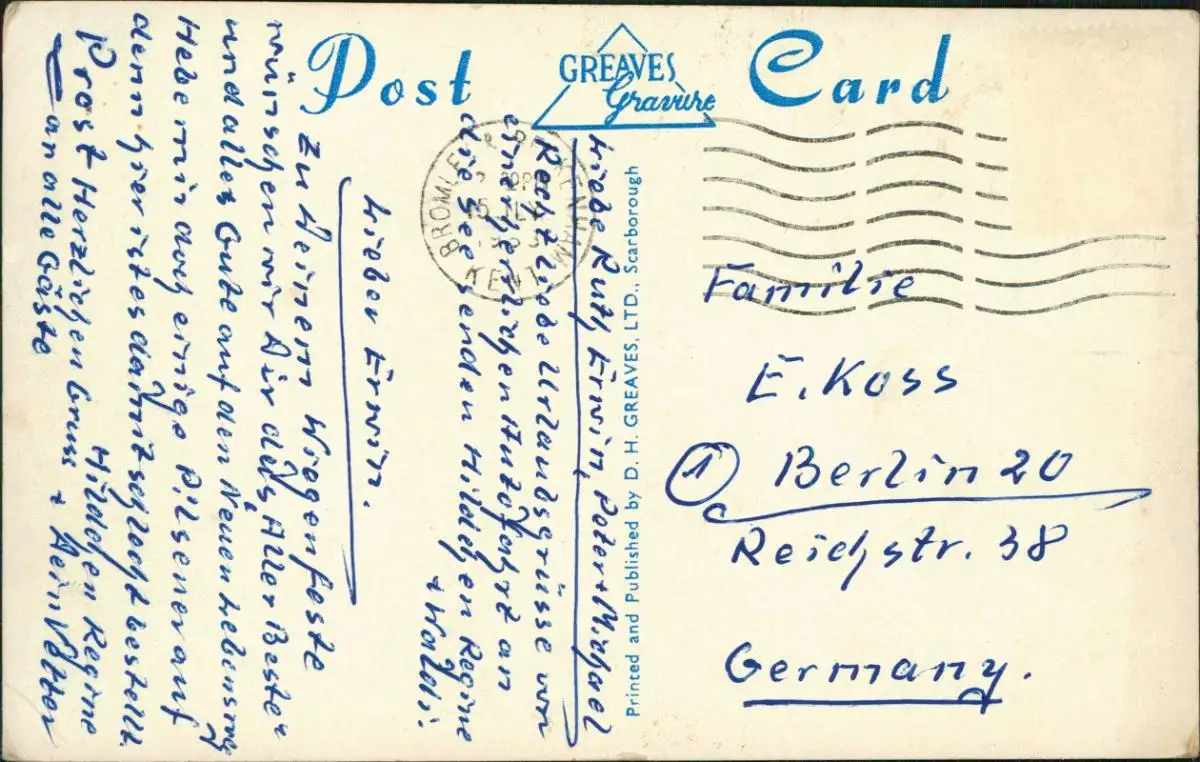 Post Card
GREAVES
Gravure
Liebe Ruth, Erwin, Peter + Michael
Recht liebe Urlaubsgrüsse von
einer herrlichen Autofahrt an
die See senden Hildchen Regine
+ Waldi.
Lieber Erwin.
Zu Deinem Wiegenfeste
wünschen wir Dir das Aller Beste
und alles Gute auf den Neuen Lebensweg
Hebe mir doch einige Pilsener auf
denn hier ist es damit schlecht bestellt.
Prost Herzlichen Gruss + Dein Vetter
Hildchen Regine
an alle Gäste
Printed and Published by D. H. GREAVES, LTD., Scarborough
BROMLEY & BECKENHAM
KENT
Familie
E. Koss
① Berlin 20
Reichstr. 38
Germany.